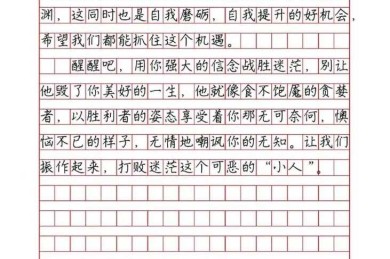 渊，这同时也是自我磨砺，自我提升的好机会，
希望我们都能抓住这个机遇。
醒醒吧，用你强大的信念战胜迷茫，别让
他毁了你美好的一生，他就像食不饱魇的贪婪
者，以胜利者的姿态享受着你那无可奈何，懊
恼不已的样子，无情地嘲讽你的无知。让我们
振作起来，打败迷茫这个可恶的“小人”。